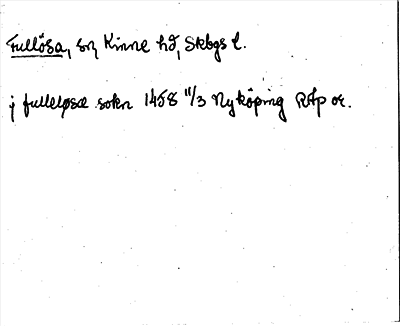 Fullösa, sn, Kinne hd, Skbgs l.
j fulleløsæ sokn 1458 11/3 Nyköping RAp or.